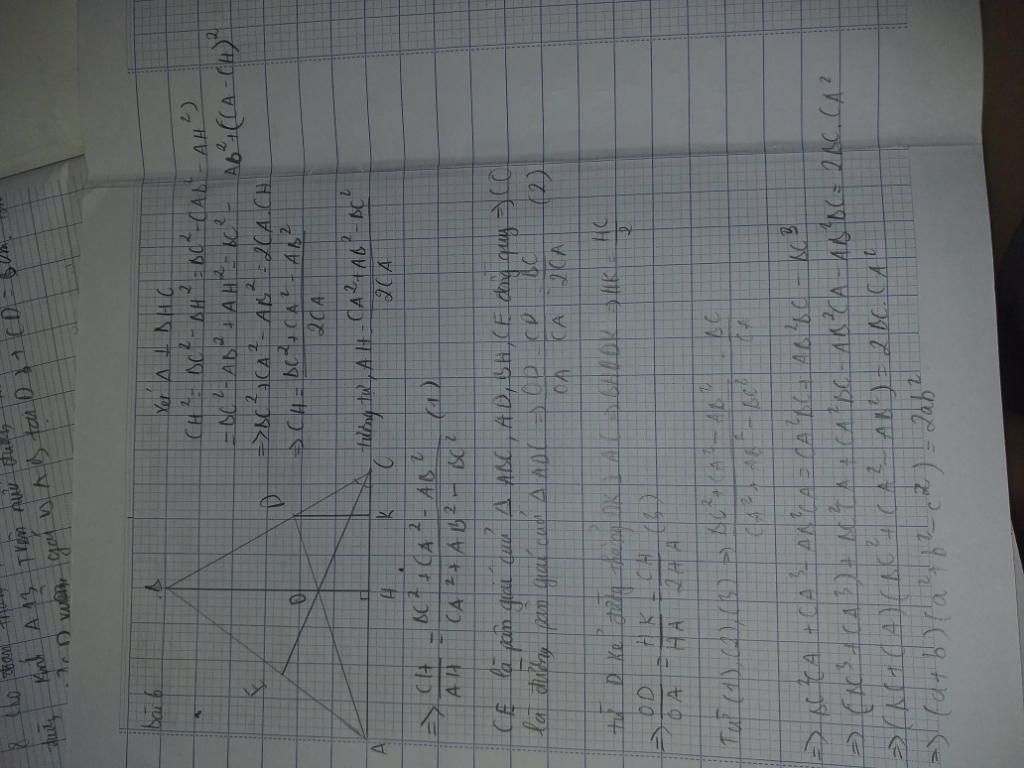 bài 6
B
E
D
O
A
H
K
C
Xét Δ ⊥ BHC
CH² = BC² - BH² = BC² - (AB² - AH²)
= BC² - AB² + AH² = BC² - AB² + (CA - CH)²
=> BC² + CA² - AB² = 2CA.CH
=> CH = BC² + CA² - AB² / 2CA
tương tự, AH = CA² + AB² - BC² / 2CA
=> CH / AH = BC² + CA² - AB² / CA² + AB² - BC² (1)
CE là phân giác của Δ ABC, AD, BH, CE đồng quy => CO
là đường phân giác của Δ ADC => OD / OA = CD / CA = BC / 2CA (2)
từ D kẻ đường thẳng DK ⊥ AC => BH // DK => HK = HC / 2
=> OD / OA = HK / HA = CH / 2HA (3)
Từ (1), (2), (3) => BC² + CA² - AB² / CA² + AB² - BC² = BC / CA
=> BC²CA + CA³ - AB²CA = CA²BC + AB²BC - BC³
=> (BC³ + CA³) + BC²CA + CA²BC - AB²CA - AB²BC = 2BC.CA²
=> (BC + CA)(BC² + CA² - AB²) = 2BC.CA²
=> (a+b)(a² + b² - c²) = 2ab²